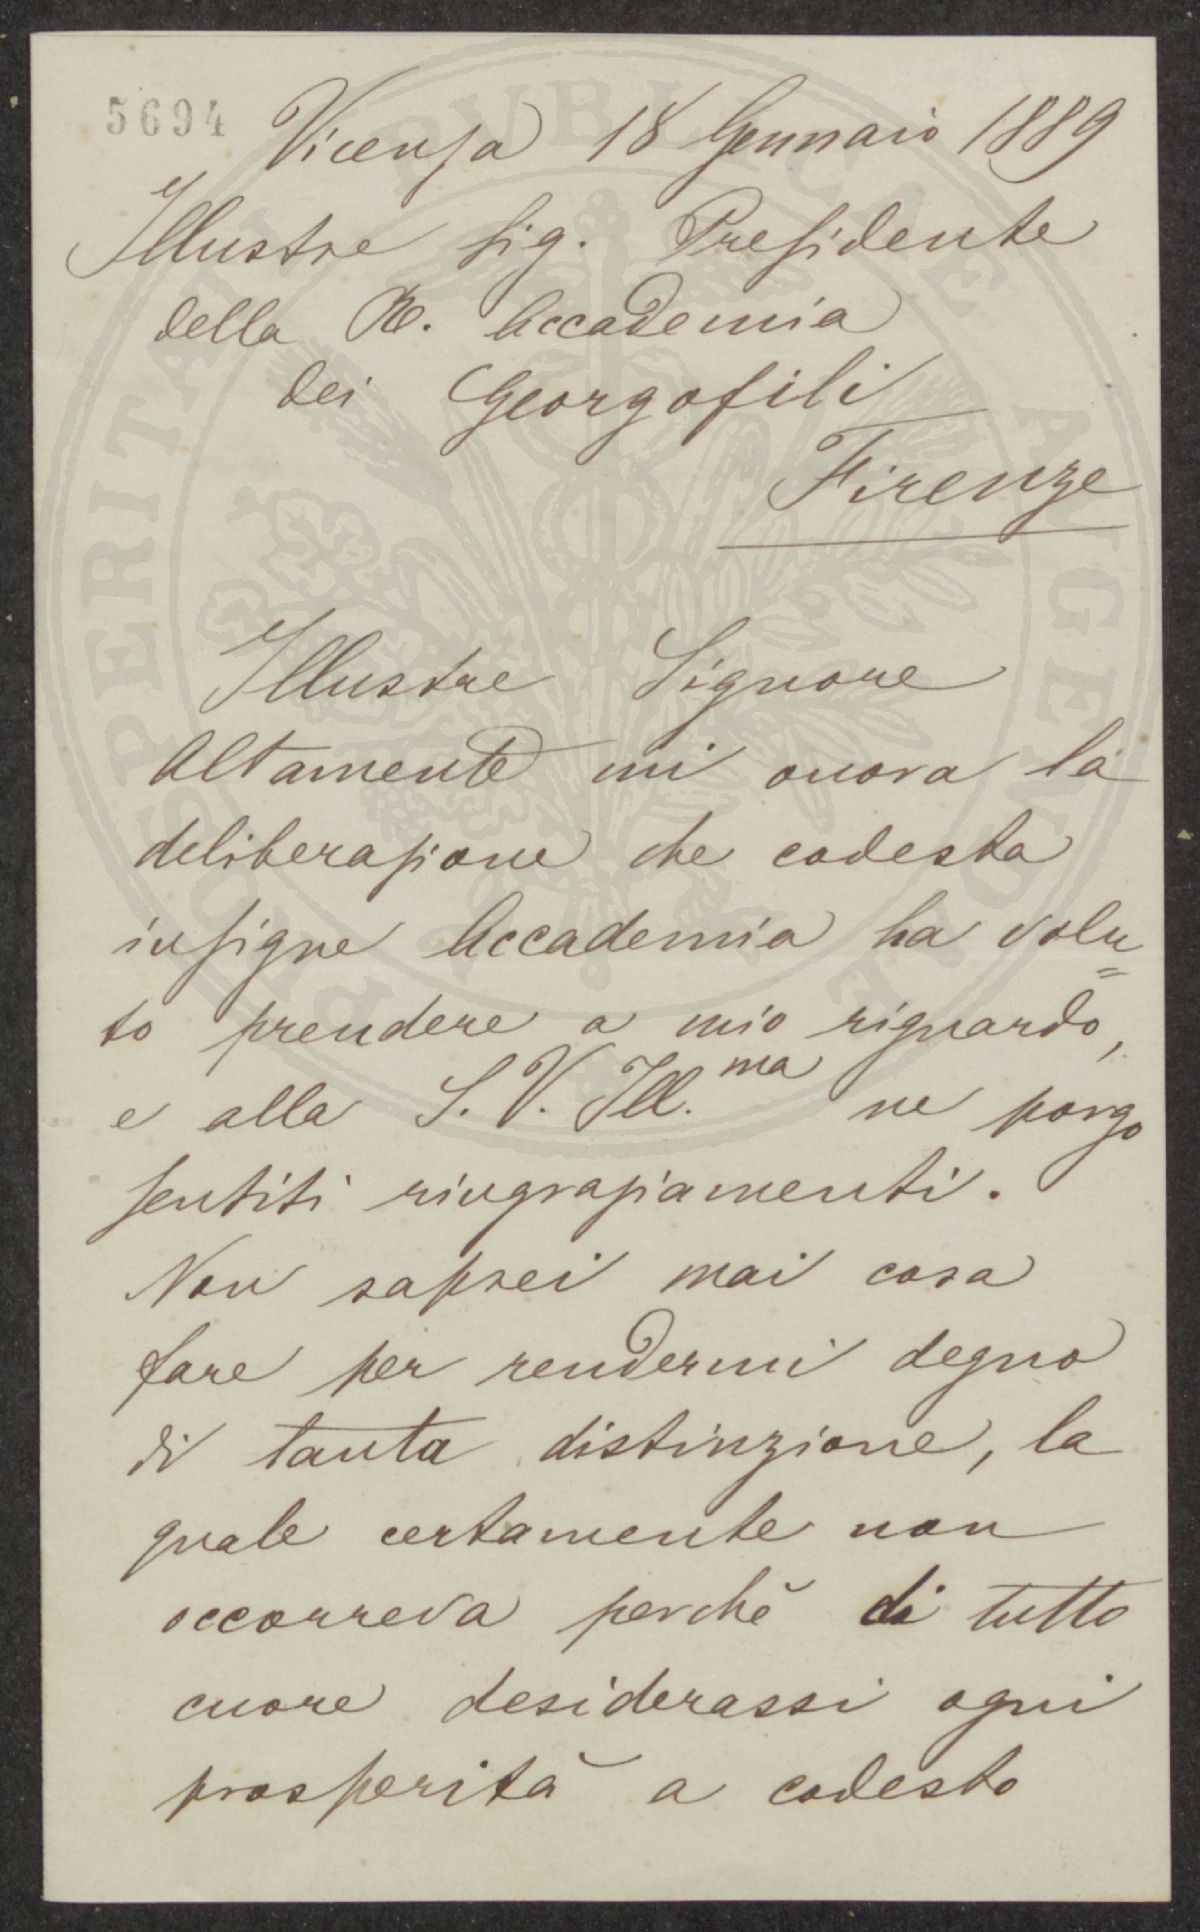 5694
Vicenza 18 Gennaio 1889
Illustre Sig. Presidente
della R. Accademia
dei Georgofili
Firenze
Illustre Signore
Altamente mi onora la
deliberazione che codesta
insigne Accademia ha volu=
to prendere a mio riguardo,
e alla S. V. Ill.ma ne porgo
sentiti ringraziamenti.
Non saprei mai cosa
fare per rendermi degno
di tanta distinzione, la
quale certamente non
occorreva perchè di tutto
cuore desiderassi ogni
prosperità a codesto
PROSPERITATI PUBLICAE AUGENDAE